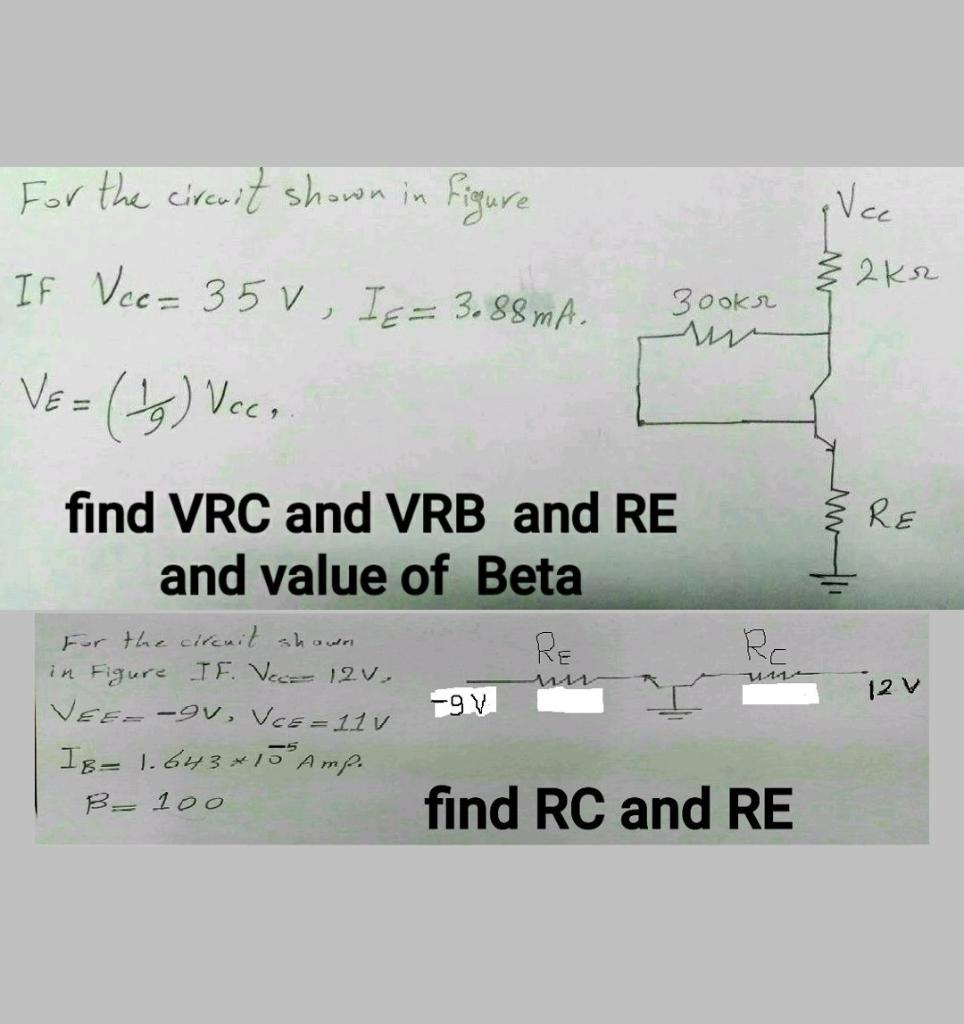 For the circuit shown in Figure
IF Vcc= 35 V, IE= 3.88mA.
VE= (1/9) Vcc,
Vcc
2kΩ
300kΩ
RE
find VRC and VRB and RE
and value of Beta
For the circuit shown
in Figure IF. Vcc= 12V,
VEE= -9V, VCE=11V
IB= 1.643*10^-5 Amp.
B= 100
RE
RC
-9V
12 V
find RC and RE